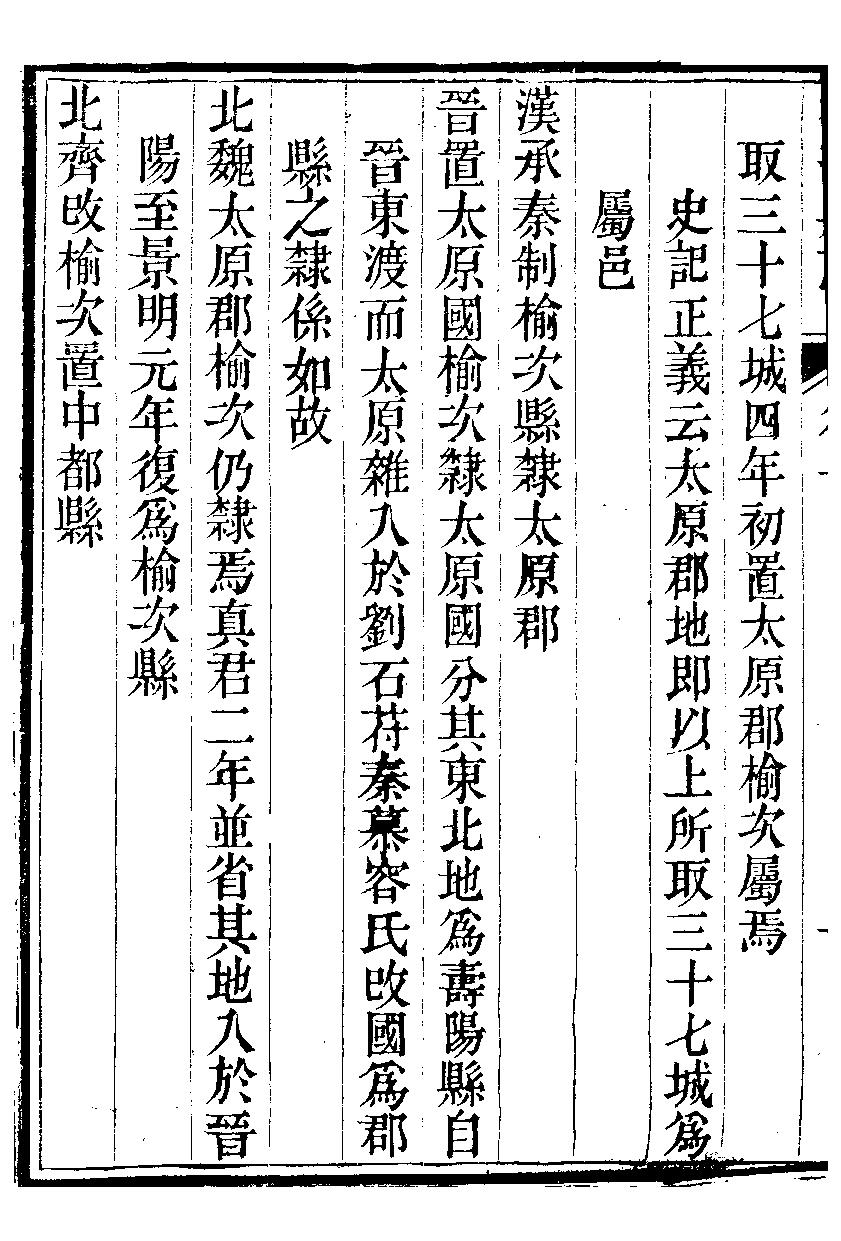 取三十七城四年初置太原郡榆次屬焉
史記正義云太原郡地即以上所取三十七城爲
屬邑
漢承秦制榆次縣隸太原郡
晉置太原國榆次隸太原國分其東北地爲壽陽縣自
晉東渡而太原雜入於劉石苻秦慕容氏改國爲郡
縣之隸係如故
北魏太原郡榆次仍隸焉真君二年並省其地入於晉
陽至景明元年復爲榆次縣
北齊改榆次置中都縣